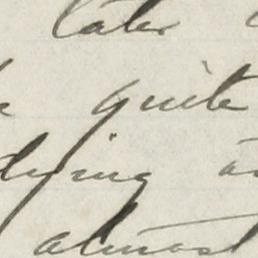 later
quite
dying
almost